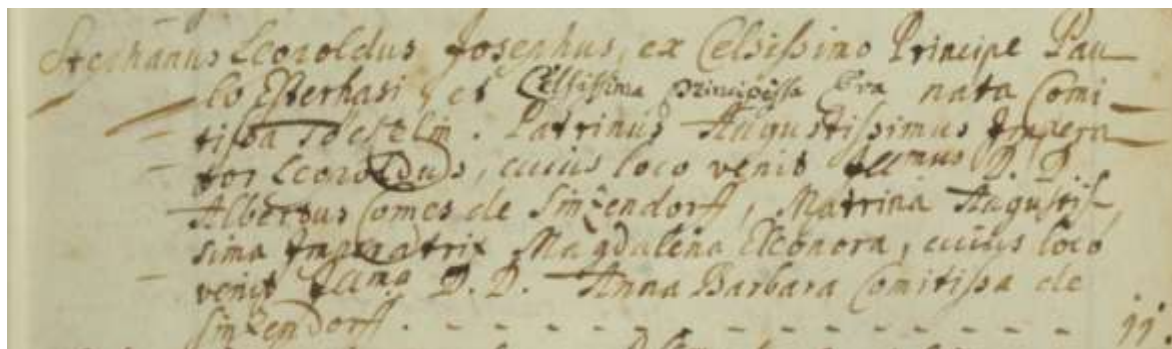 Stephanus Leopoldus Josephus, ex Celsissimo Principe Pau
lo Esterhasi, et Celsissima Principissa Eva nata Comi
tissa Tökelin. Patrinus Augustissimus Impera
tor Leopoldus, cuius loco venit Illmus D. D.
Albertus Comes de Sinzendorff, Matrina Augustis
sima Imperatrix Magdalena Eleonora, cuius loco
venit Illma D. D. Anna Barbara Comitissa de
Sinzendorff. - - - - - - - - - - - - - - 11.